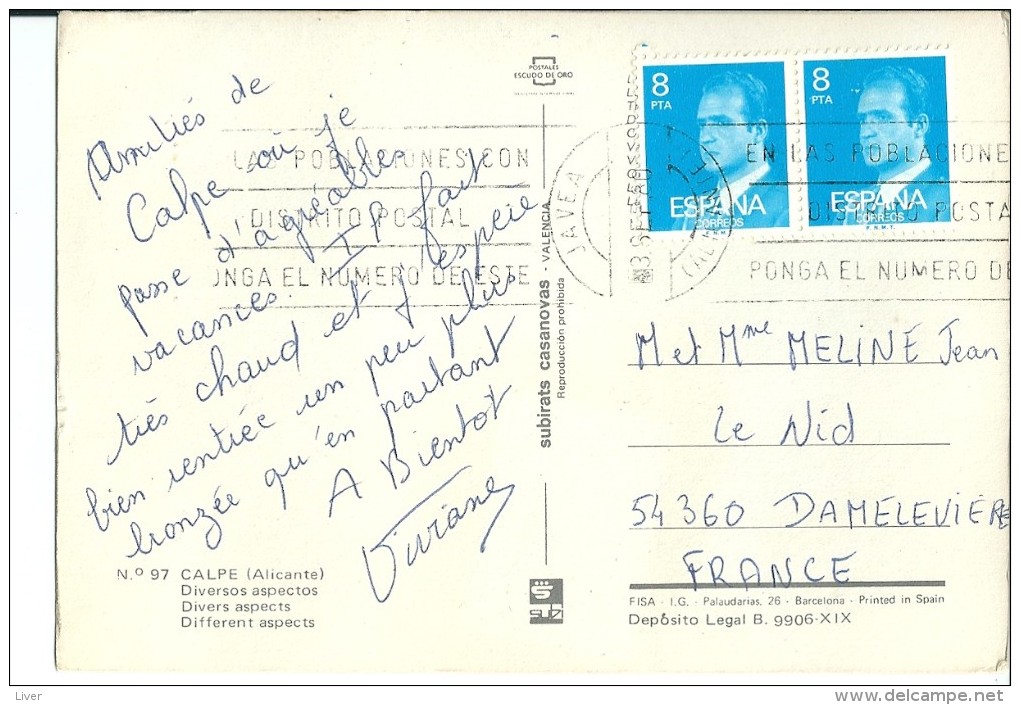 POSTALES
ESCUDO DE ORO
Amitiés de
Calpe où je
passe d'agréables
vacances. Il fait
très chaud et j'espère
bien rentrée un peu plus
bronzée qu'en partant
A Bientot
Viviane
LAS POBLACIONES CON
DISTRITO POSTAL
ONGA EL NUMERO DE ESTE
N.º 97 CALPE (Alicante)
Diversos aspectos
Divers aspects
Different aspects
subirats casanovas - VALENCIA
Reproducción prohibida
SUBI
8
PTA
ESPAÑA
CORREOS
F.N.M.T.
8
PTA
ESPAÑA
CORREOS
F.N.M.T.
JAVEA
EN LAS POBLACIONE
DISTRITO POSTA
PONGA EL NUMERO DE
M et Mme MELINE Jean
Le Nid
54360 DAMELEVIERE
FRANCE
FISA - I.G. - Palaudarias, 26 - Barcelona - Printed in Spain
Depósito Legal B. 9906-XIX
Liver
www.delcampe.net